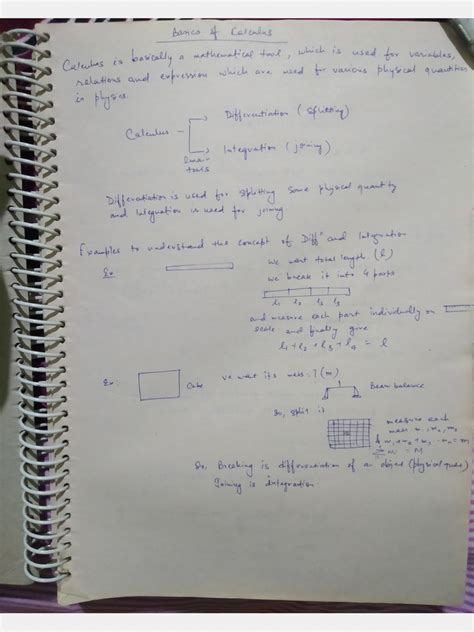 Basics of Calculus
Calculus is basically a mathematical tool, which is used for variables,
relations and expression which are used for various physical quantities
in physics.
Differentiation (splitting)
Calculus
Integration (joining)
tools
Differentiation is used for splitting some physical quantity
and Integration is used for joining.
Examples to understand the concept of Diffn and Integration
Ex We want total length (l)
We break it into 4 parts
l1 l2 l3
and measure each part individually on
scale and finally give
l1 + l2 + l3 + l4 = l
Ex: Cube we want its mass = ? (m)
Beam balance
So, split it
measure each
mass
= M
So, Breaking is differentiation of an object (physical
Joining is integration